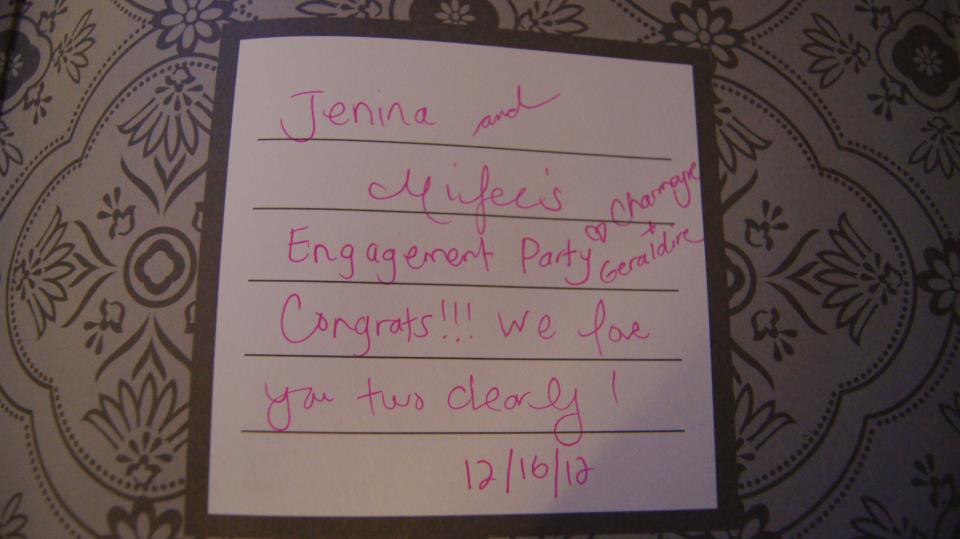 Jenina and
Mifee's
Engagement Party
♡ Charmayne
+
Geraldine
Congrats!!! We love
you two dearly!
12/16/12